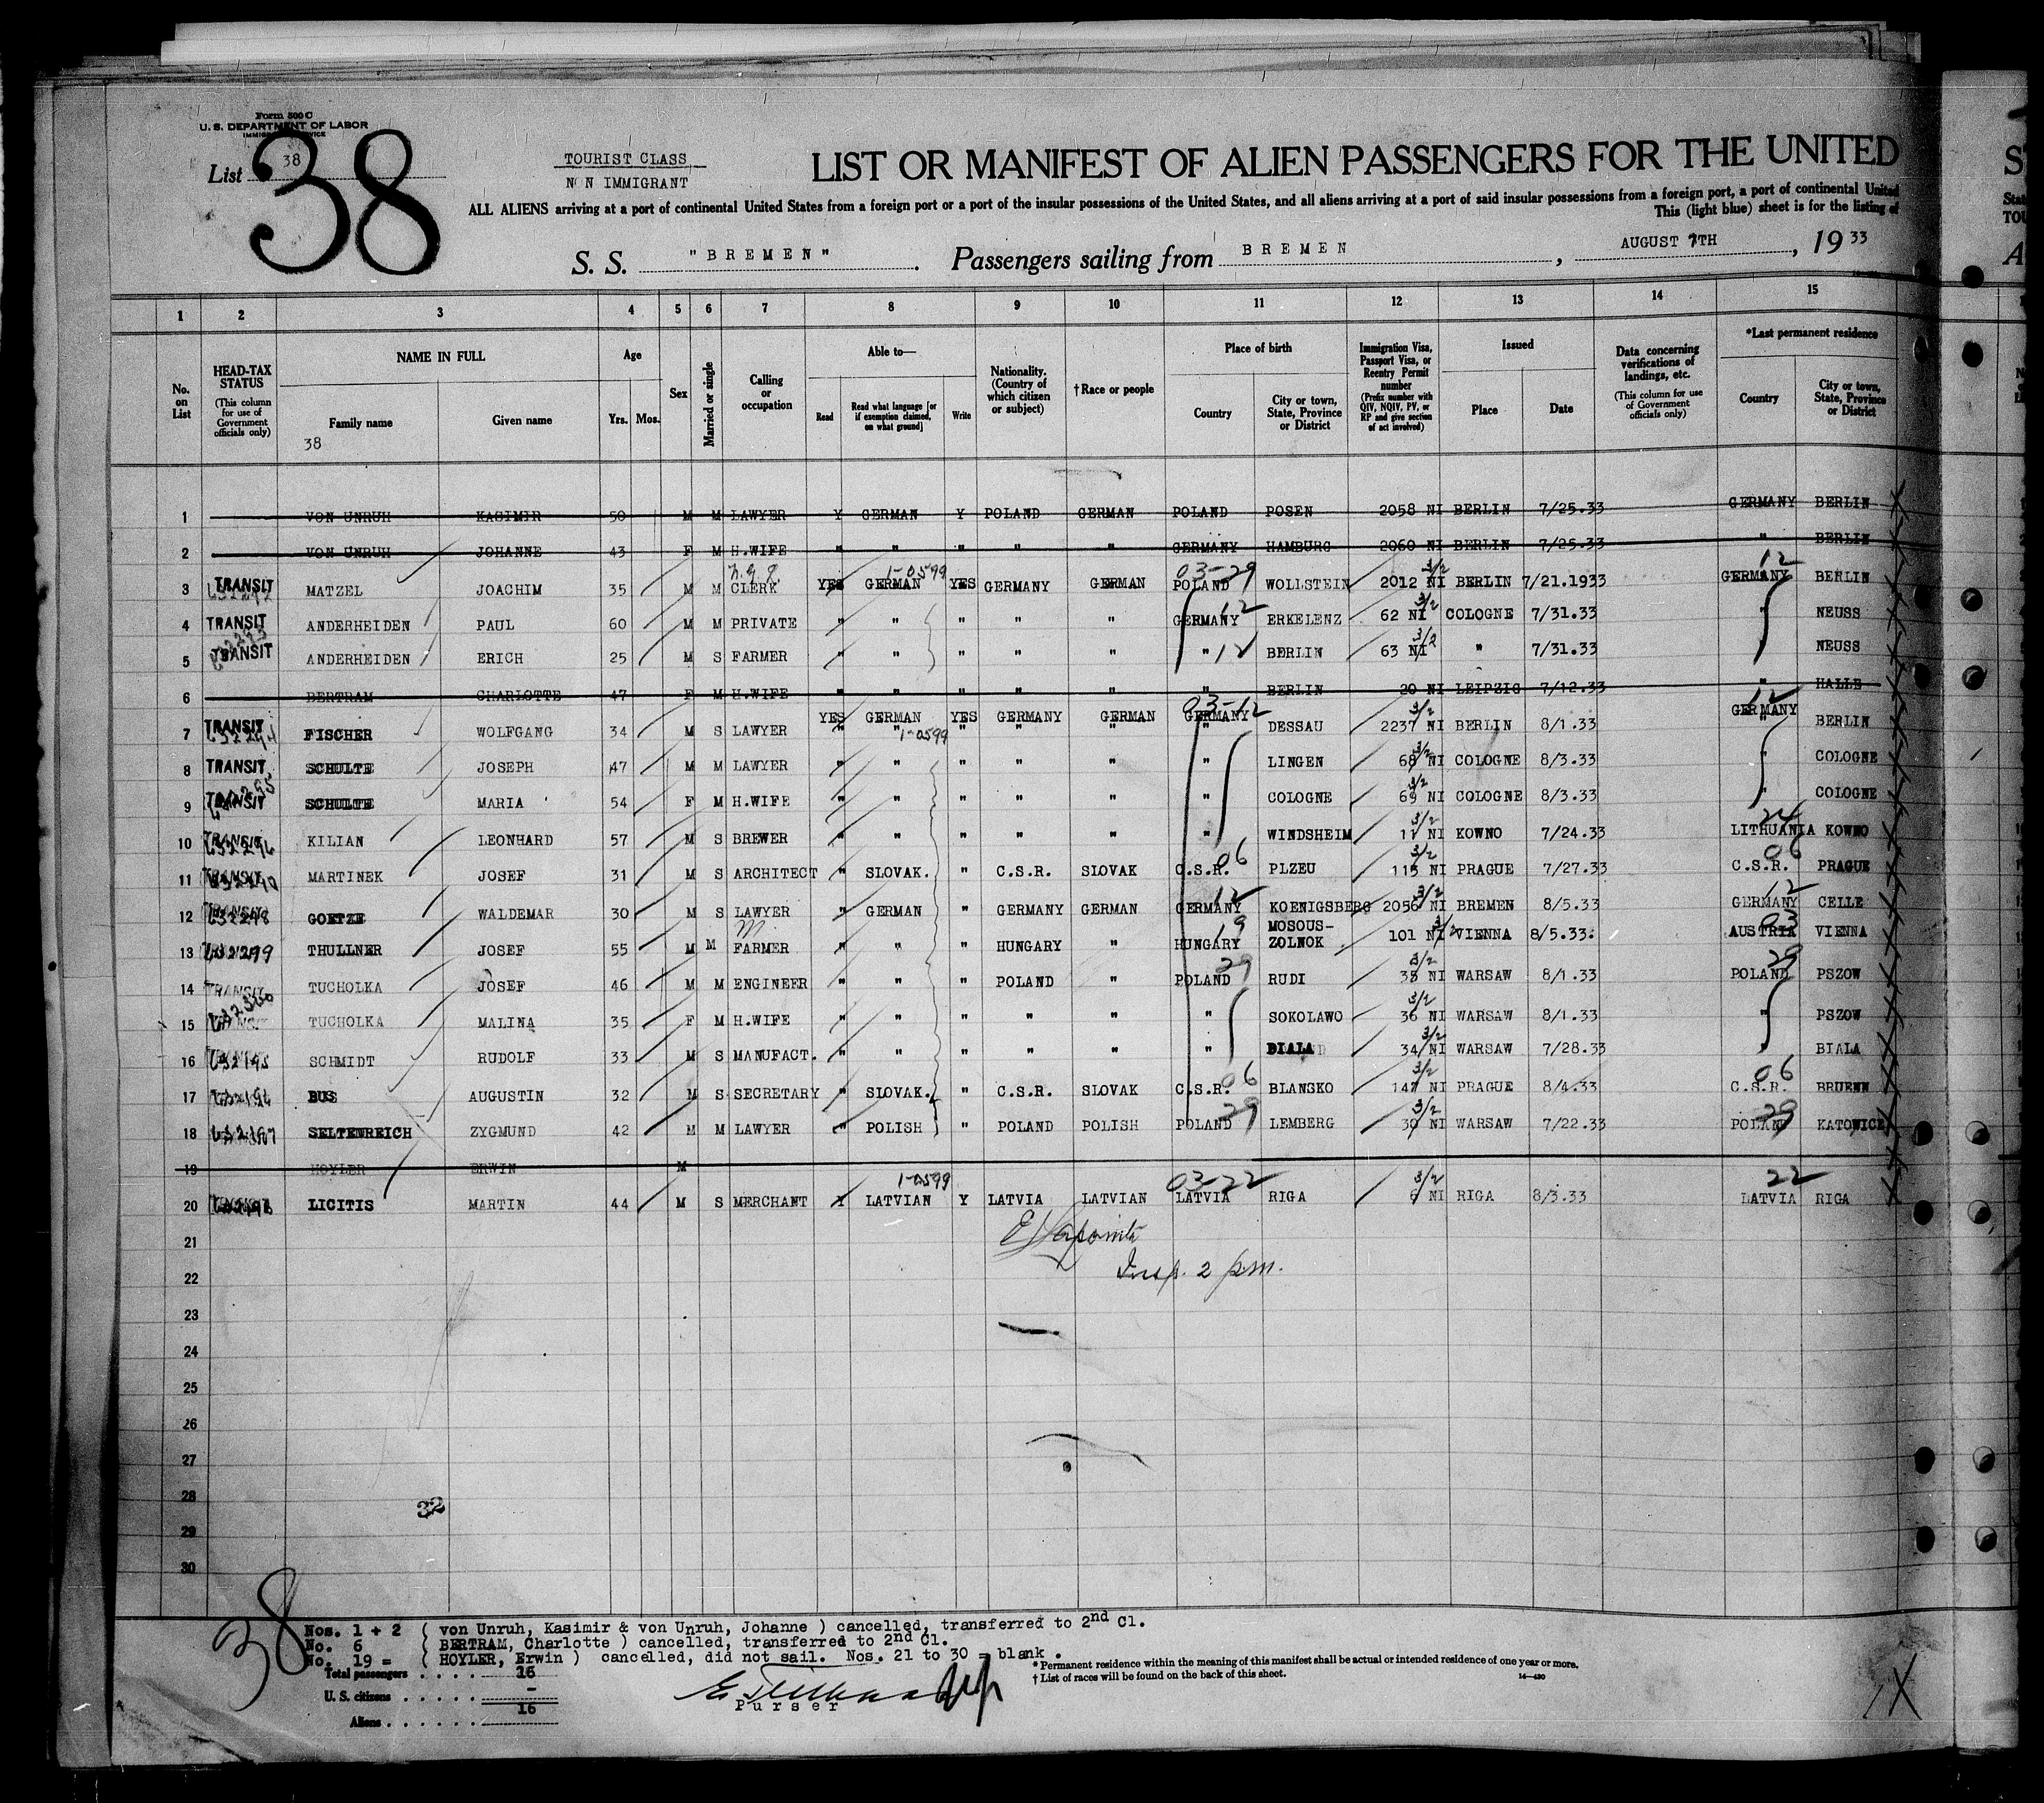 Form 500 C
U. S. DEPARTMENT OF LABOR
List 38
38
TOURIST CLASS
N N IMMIGRANT
LIST OR MANIFEST OF ALIEN PASSENGERS FOR THE UNITED
ALL ALIENS arriving at a port of continental United States from a foreign port or a port of the insular possessions of the United States, and all aliens arriving at a port of said insular possessions from a foreign port, a port of continental United
This (light blue) sheet is for the listing of
S. S. "BREMEN". Passengers sailing from BREMEN, AUGUST 7TH, 19 33
1 2 3 4 5 6 7 8 9 10 11 12 13 14 15
No. on List
HEAD-TAX STATUS (This column for use of Government officials only)
NAME IN FULL
Family name
Given name
38
Age
Yrs. Mos.
Sex
Married or single
Calling or occupation
Able to—
Read
Read what language [or if exemption claimed, on what ground]
Write
Nationality. (Country of which citizen or subject)
†Race or people
Place of birth
Country
City or town, State, Province or District
Immigration Visa, Passport Visa, or Reentry Permit number (Prefix number with QIV, NQIV, PV, or RP and give section of act involved)
Issued
Place
Date
Data concerning verifications of landings, etc. (This column for use of Government officials only)
*Last permanent residence
Country
City or town, State, Province or District
1 VON UNRUH KASIMIR 50 M M LAWYER Y GERMAN Y POLAND GERMAN POLAND POSEN 2058 NI BERLIN 7/25.33 GERMANY BERLIN
2 VON UNRUH JOHANNE 43 F M H.WIFE " " " " " GERMANY HAMBURG 2060 NI BERLIN 7/25.33 " BERLIN
1-0599 03-29 3/2 12
3 TRANSIT MATZEL JOACHIM 35 M M CLERK YES GERMAN YES GERMANY GERMAN POLAND WOLLSTEIN 2012 NI BERLIN 7/21.1933 GERMANY BERLIN
4 TRANSIT ANDERHEIDEN PAUL 60 M M PRIVATE " " " " " GERMANY 12 ERKELENZ 62 NI 3/2 COLOGNE 7/31.33 " NEUSS
5 TRANSIT ANDERHEIDEN ERICH 25 M S FARMER " " " " " " 12 BERLIN 63 NI 3/2 " 7/31.33 NEUSS
6 BERTRAM CHARLOTTE 47 F M H.WIFE " " " " " " BERLIN 20 NI LEIPZIG 7/12.33 " HALLE
YES GERMAN YES GERMANY GERMAN 03-12 GERMANY 3/2 12 GERMANY
7 TRANSIT FISCHER WOLFGANG 34 M S LAWYER " " 1-0599 " " " " DESSAU 2237 NI BERLIN 8/1.33 " BERLIN
8 TRANSIT SCHULTE JOSEPH 47 M M LAWYER " " " " " " LINGEN 68 NI 3/2 COLOGNE 8/3.33 " COLOGNE
9 TRANSIT SCHULTE MARIA 54 F M H.WIFE " " " " " " COLOGNE 69 NI 3/2 COLOGNE 8/3.33 " COLOGNE
10 TRANSIT KILIAN LEONHARD 57 M S BREWER " " " " " " WINDSHEIM 11 NI 3/2 KOWNO 7/24.33 24 LITHUANIA KOWNO
11 MARTINEK JOSEF 31 M S ARCHITECT " SLOVAK. " C.S.R. SLOVAK C.S.R. 06 PLZEU 115 NI 3/2 PRAGUE 7/27.33 06 C.S.R. PRAGUE
12 GOETZE WALDEMAR 30 M S LAWYER " GERMAN " GERMANY GERMAN GERMANY 12 KOENIGSBERG 2056 NI 3/2 BREMEN 8/5.33 12 GERMANY CELLE
13 THULLNER JOSEF 55 M M FARMER " " " HUNGARY " HUNGARY 19 MOSOUS-ZOLNOK 101 NI 3/2 VIENNA 8/5.33. 03 AUSTRIA VIENNA
14 TRANSIT TUCHOLKA JOSEF 46 M M ENGINEER " " " POLAND " POLAND 29 RUDI 35 NI 3/2 WARSAW 8/1.33 29 POLAND PSZOW
15 TUCHOLKA MALINA 35 F M H.WIFE " " " " " " SOKOLAWO 36 NI 3/2 WARSAW 8/1.33 " PSZOW
16 SCHMIDT RUDOLF 33 M S MANUFACT. " " " " " " BIALA 34 NI 3/2 WARSAW 7/28.33 " BIALA
17 BUS AUGUSTIN 32 M S SECRETARY " SLOVAK. " C.S.R. SLOVAK C.S.R. 06 BLANSKO 147 NI 3/2 PRAGUE 8/4.33 06 C.S.R. BRUENN
18 SELTENREICH ZYGMUND 42 M M LAWYER " POLISH " POLAND POLISH POLAND 29 LEMBERG 30 NI 3/2 WARSAW 7/22.33 29 POLAND KATOWICE
19 HOYLER ERWIN M
1-0599 03-22 3/2 22
20 LICITIS MARTIN 44 M S MERCHANT Y LATVIAN Y LATVIA LATVIAN LATVIA RIGA 6 NI RIGA 8/3.33 LATVIA RIGA
21
Insp. 2 pm.
22
23
24
25
26
27
28
32
29
30
38
Nos. 1 + 2 ( von Unruh, Kasimir & von Unruh, Johanne ) cancelled, transferred to 2nd Cl.
No. 6 ( BERTRAM, Charlotte ) cancelled, transferred to 2nd Cl.
No. 19 = ( HOYLER, Erwin ) cancelled, did not sail. Nos. 21 to 30 = blank.
Total passengers . . . . 16
U. S. citizens . . . . . –
Aliens . . . . . . 16
Purser
* Permanent residence within the meaning of this manifest shall be actual or intended residence of one year or more.
† List of races will be found on the back of this sheet.
14—430
X